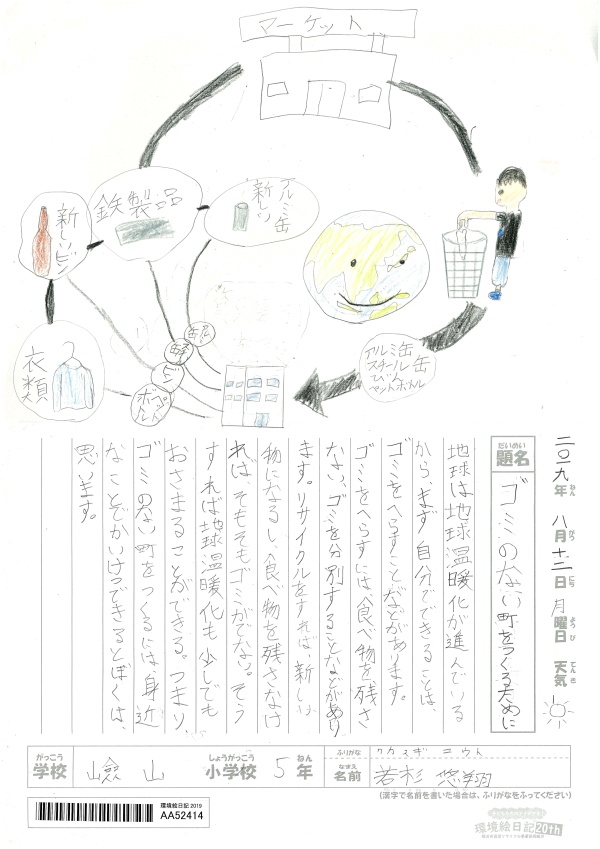 マーケット
鉄製品
アルミ缶
新しい
新しいビン
衣類
缶
ビン
アルミ缶
スチール缶
びん
ペットボトル
二〇一九年八月十二日月曜日 天気
ねん がつ にち ようび てんき
だいめい
題名
ゴミのない町をつくるために
地球は地球温暖化が進んでいる
から、まず自分でできることは、
ゴミをへらすことなどがあります。
ゴミをへらすには、食べ物を残さ
ない、ゴミを分別することなどがあり
ます。リサイクルをすれば、新しい
物になるし、食べ物を残さなけ
れば、そもそもゴミがでない。そう
すれば地球温暖化も少しでも
おさまることができる。つまり、
ゴミのない町をつくるには身近
なことでかいけつできるとぼくは、
思います。
がっこう
学校
山
しょうがっこう
小学校
5
ねん
年
ふりがな
なまえ
名前
若杉 悠翔
(漢字で名前を書いた場合は、ふりがなをふってください)
環境絵日記 2019
AA52414
環境絵日記20th